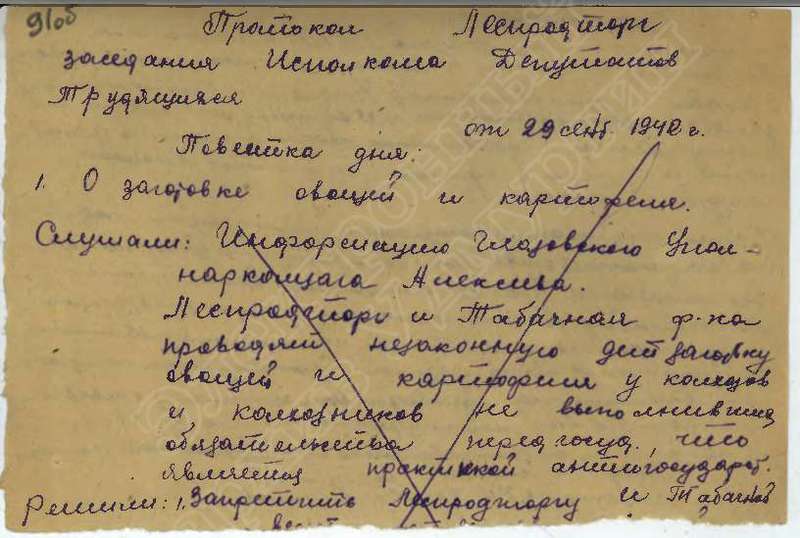 91об
Протокол Леспродторг
заседания Исполкома Депутатов
Трудящихся
от 29 сент. 1942 г.
Повестка дня:
1. О заготовке овощей и картофеля.
Слушали: Информацию Глазовского Упол-
наркомзага Алексива.
Леспродторг и Табачная ф-ка
проводят незаконную заговку
овощей и картофеля у колхозов
и колхозников не выполнивших
обязательства перед госуд. что
является практикой антигосударств.
Решили: 1. Запретить Леспродторгу и Табачной